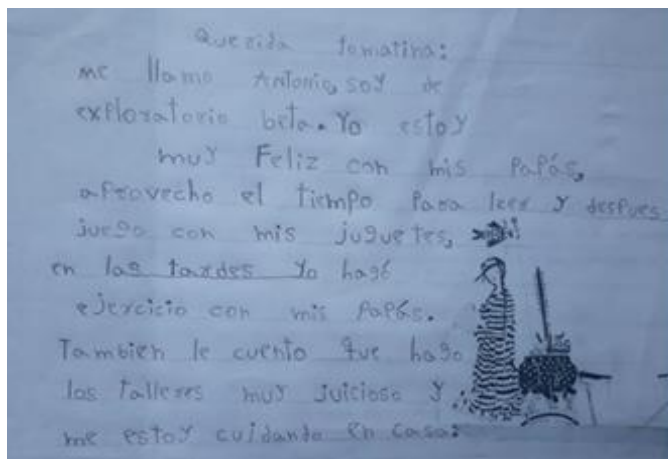 Querida tomatina:
me llamo Antonio, soy de
exploratorio beta. Yo estoy
muy Feliz con mis Papás,
aProvecho el tiempo Para leer y despues
juego con mis juguetes,
en las tardes Yo hagó
ejercicio con mis PaPás.
Tambien le cuento que hago
los talleres muy juicioso y
me estoy cuidando en casa.